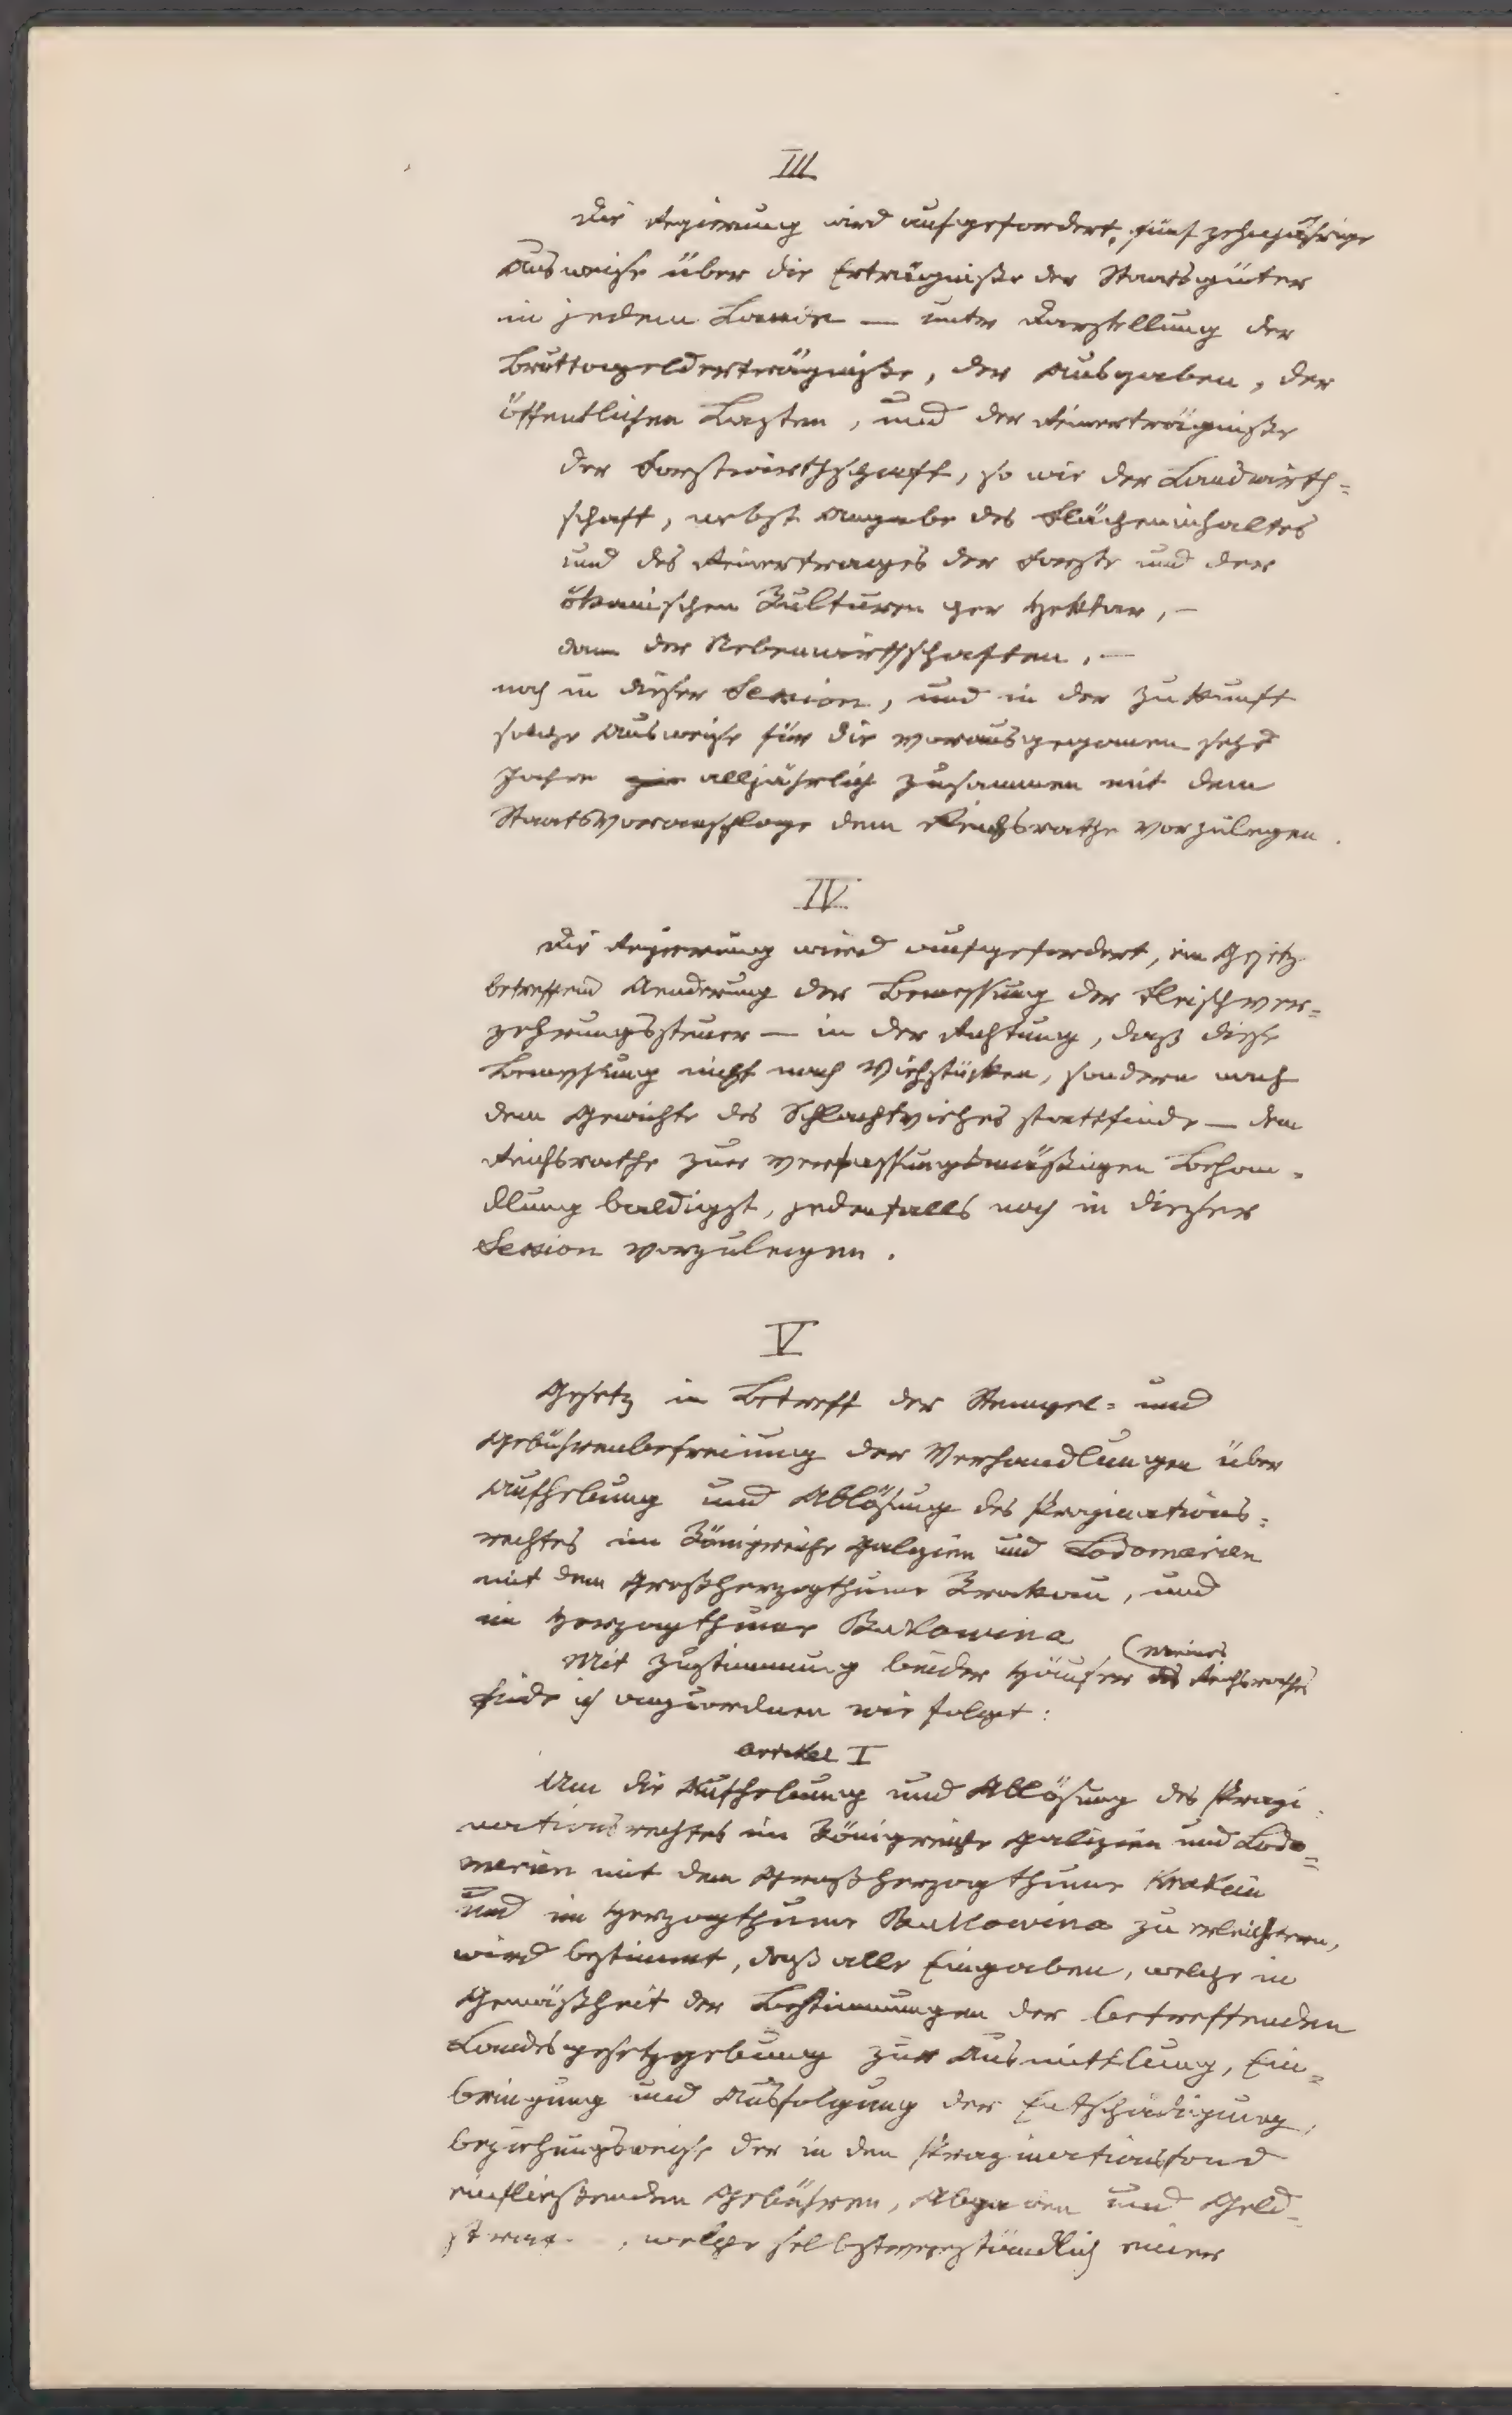 III
Die Regierung wird aufgefordert, fünfzehnjährige
Ausweise über die Erträgniße der Staatsgüter
in jedem Lande — unter Darstellung der
Bruttogelderträgniße, der Ausgaben, der
öffentlichen Lasten, und der Reinerträgniße
der Forstwirthschaft, so wie der Landwirth=
schaft, nebst Angabe des Flächeninhaltes
und des Reinertrages der Forste und der
ökonischen Kulturen per Hektar, —
dann der Nebenwirthschaften, —
noch in dieser Session, und in der Zukunft
solche Ausweise für die vorausgegangenen sechs
Jahre alljährlich zusammen mit dem
Staatsvoranschlage dem Reichsrathe vorzulegen.
IV.
Die Regierung wird aufgefordert, ein Gesetz
betreffend Aenderung der Bemessung der Fleischver=
zehrungssteuer — in der Richtung, daß diese
Bemessung nicht nach Viehstücken, sondern nach
dem Gewichte des Schlachtviehes stattfinde — dem
Reichsrathe zur verfassungsmäßigen Behan=
dlung baldigst, jedenfalls noch in dieser
Session vorzulegen.
V
Gesetz in Betreff der Stempel= und
Gebührenbefreiung der Verhandlungen über
Aufhebung und Ablösung des Propinations=
rechtes im Königreiche Galizien und Lodomerien
mit dem Großherzogthume Krakau, und
im Herzogthume Bukowina
Mit Zustimmung beider Häuser des (meines Reichsrathes
finde ich anzuordnen wie folgt:
Artikel I
Um die Aufhebung und Ablösung des Propi=
nationsrechtes im Königreiche Galizien und Lodo=
merien mit dem Großherzogthume Krakau
und im Herzogthume Bukowina zu erleichtern,
wird bestimmt, daß alle Eingaben, welche in
Gemäßheit der Bestimmungen der betreffenden
Landesgesetzgebung zur Ausmittlung, Ein=
bringung und Ausfolgung der Entschädigung,
beziehungsweise der in den Propinationsfond
einfließenden Gebühren, Abgaben und Geld=
, welche selbstverständlich einer